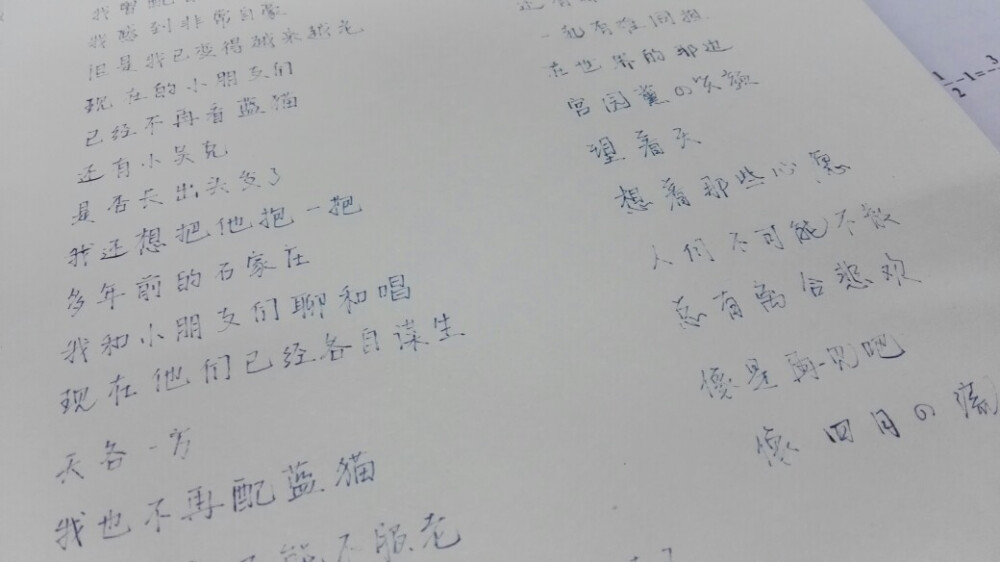 我曾配
我感到非常自豪
但是我已变得越来越老
现在的小朋友们
已经不再看蓝猫
还有小吴克
是否长出头发了
我还想把他抱一抱
多年前的石家庄
我和小朋友们聊和唱
现在他们已经各自谋生
天各一方
我也不再配蓝猫
不能不服老
在世界的那边
宫园薰の笑颜
望着天
想着那些心愿
人们不可能不散
总有离合悲欢
像是再见吧
像四月の